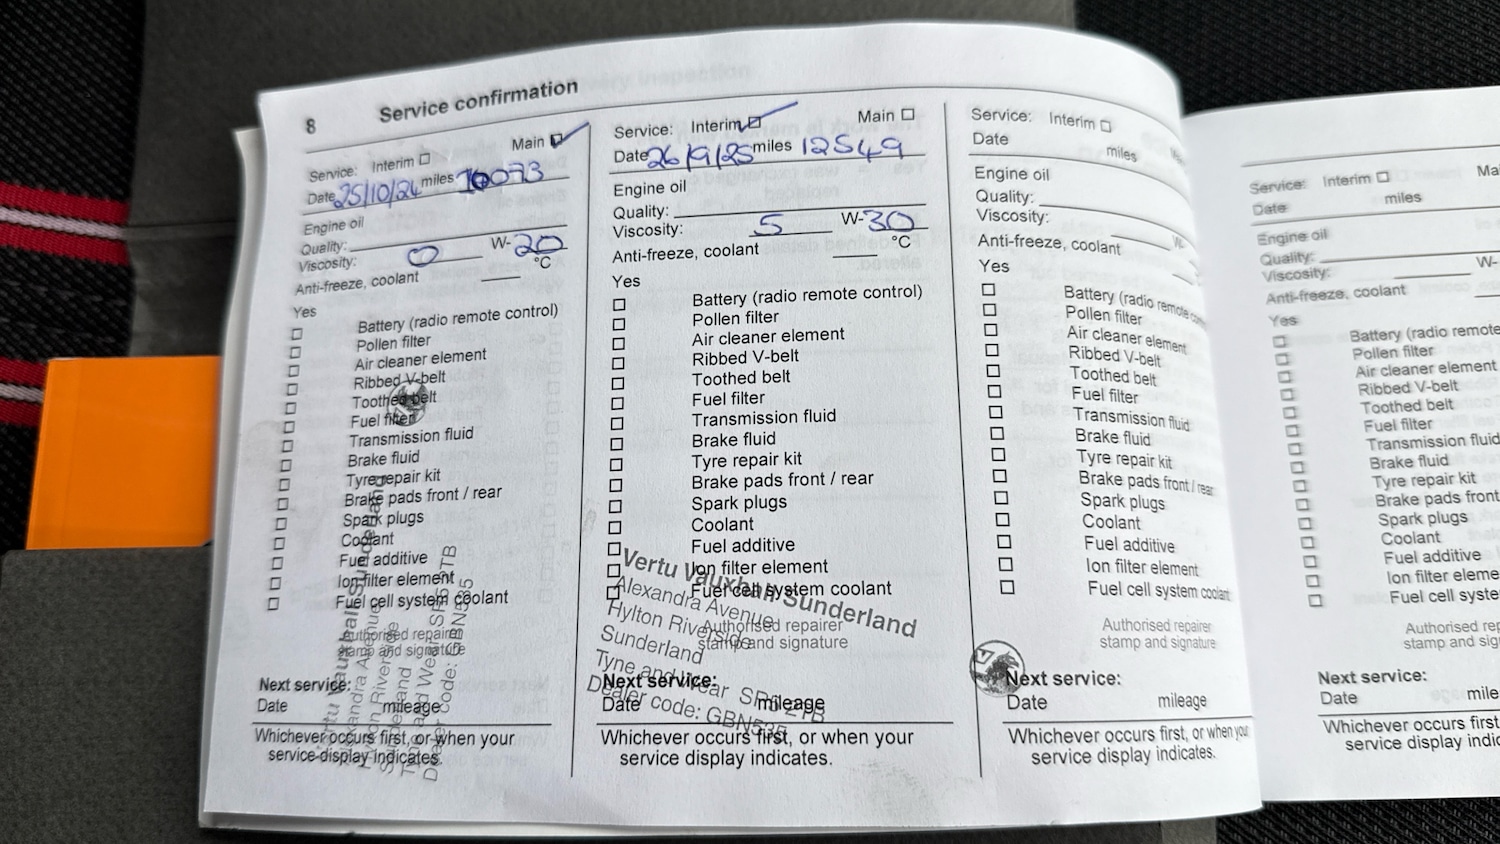 8 Service confirmation
Service: Interim ☐ Main ☑
Date 25/10/24 miles 10073
Engine oil
Quality:
Viscosity: 0 W-20
Anti-freeze, coolant °C
Yes
☐ Battery (radio remote control)
☐ Pollen filter
☐ Air cleaner element
☐ Ribbed V-belt
☐ Toothed belt
☐ Fuel filter
☐ Transmission fluid
☐ Brake fluid
☐ Tyre repair kit
☐ Brake pads front / rear
☐ Spark plugs
☐ Coolant
☐ Fuel additive
☐ Ion filter element
☐ Fuel cell system coolant
Authorised repairer
stamp and signature
Vertu Vauxhall Sunderland
Alexandra Avenue
Hylton Riverside
Sunderland
Tyne and Wear SR5 TB
Dealer Code: GBN535
Next service:
Date mileage
Whichever occurs first, or when your
service display indicates.
Service: Interim ☑ Main ☐
Date 26/9/25 miles 12549
Engine oil
Quality:
Viscosity: 5 W-30
Anti-freeze, coolant °C
Yes
☐ Battery (radio remote control)
☐ Pollen filter
☐ Air cleaner element
☐ Ribbed V-belt
☐ Toothed belt
☐ Fuel filter
☐ Transmission fluid
☐ Brake fluid
☐ Tyre repair kit
☐ Brake pads front / rear
☐ Spark plugs
☐ Coolant
☐ Fuel additive
☐ Ion filter element
☐ Fuel cell system coolant
Authorised repairer
stamp and signature
Vertu Vauxhall Sunderland
Alexandra Avenue
Hylton Riverside
Sunderland
Tyne and Wear SR5 2TB
Dealer code: GBN535
Next service:
Date mileage
Whichever occurs first, or when your
service display indicates.
Service: Interim ☐
Date miles
Engine oil
Quality:
Viscosity: W-
Anti-freeze, coolant
Yes
☐ Battery (radio remote
☐ Pollen filter
☐ Air cleaner element
☐ Ribbed V-belt
☐ Toothed belt
☐ Fuel filter
☐ Transmission fluid
☐ Brake fluid
☐ Tyre repair kit
☐ Brake pads front / rear
☐ Spark plugs
☐ Coolant
☐ Fuel additive
☐ Ion filter element
☐ Fuel cell system coolant
Authorised repairer
stamp and signature
Next service:
Date mileage
Whichever occurs first, or when you
service display indicates.
Service: Interim ☐ Ma
Date miles
Engine oil
Quality:
Viscosity: W-
Anti-freeze, coolant
Yes
☐ Battery (radio remote
☐ Pollen filter
☐ Air cleaner element
☐ Ribbed V-belt
☐ Toothed belt
☐ Fuel filter
☐ Transmission fluid
☐ Brake fluid
☐ Tyre repair kit
☐ Brake pads front
☐ Spark plugs
☐ Coolant
☐ Fuel additive
☐ Ion filter eleme
☐ Fuel cell syste
Authorised rep
stamp and sig
Next service:
Date mile
Whichever occurs first
service display indic